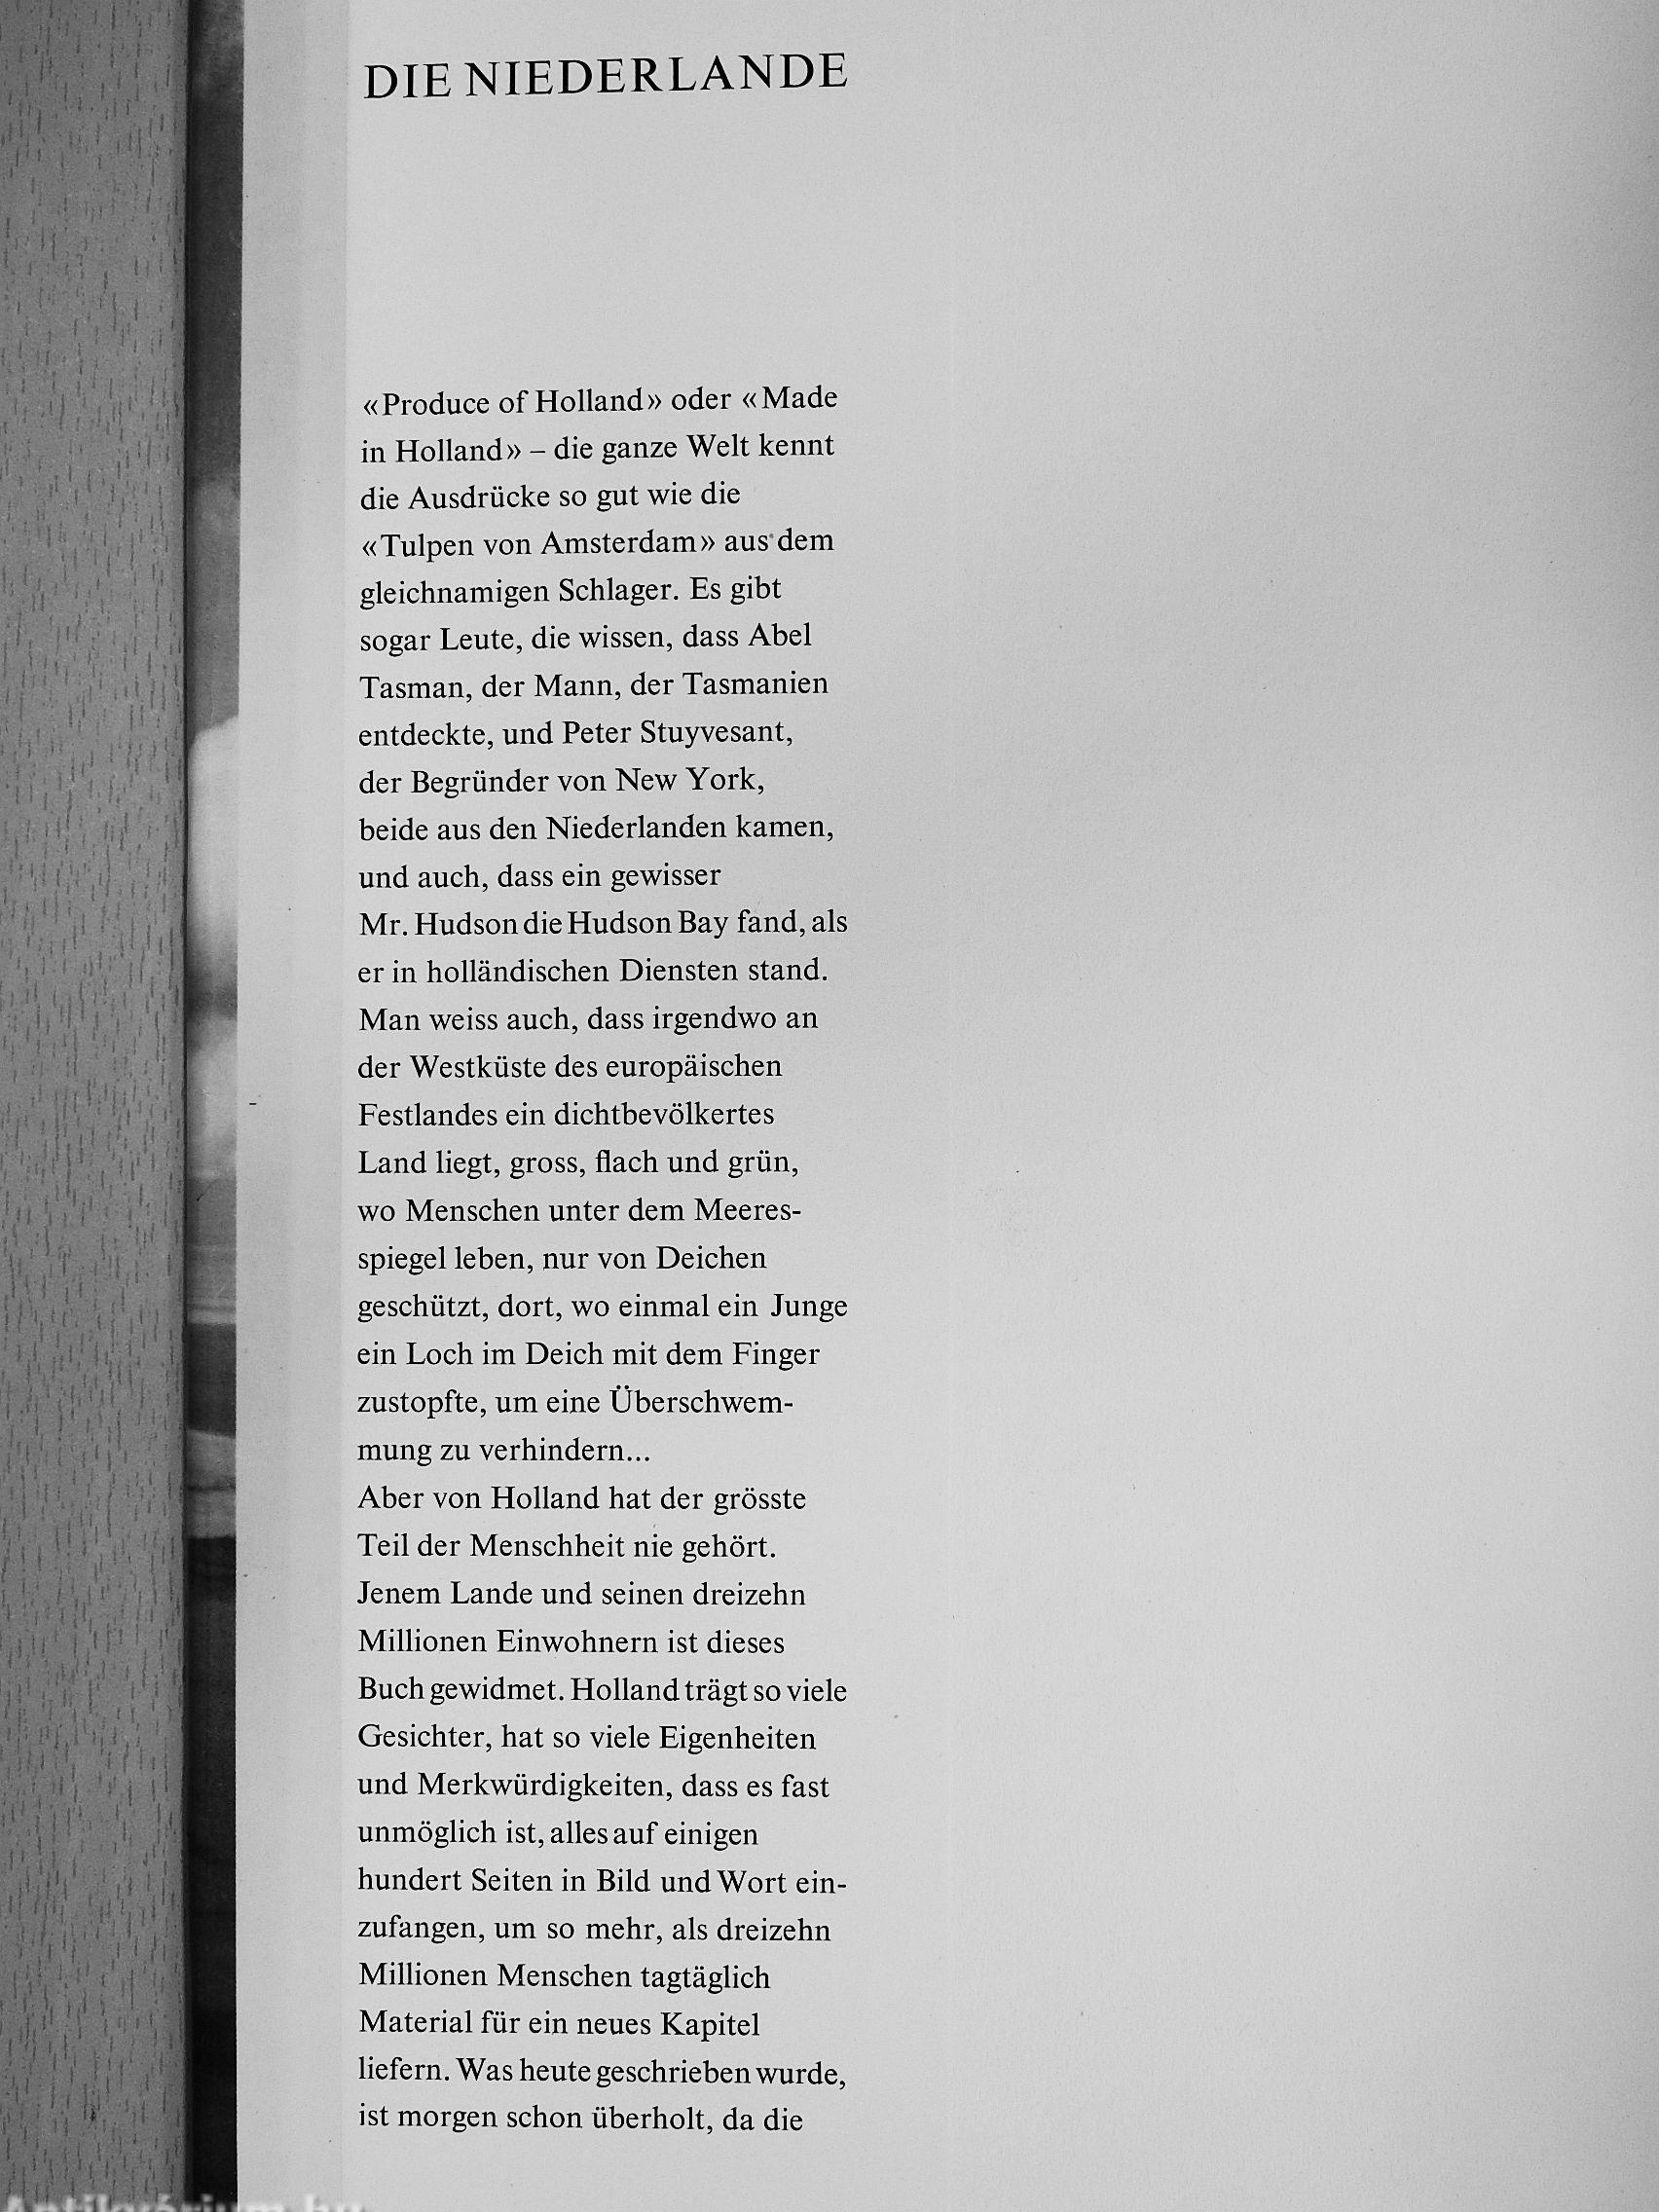 DIE NIEDERLANDE
«Produce of Holland» oder «Made
in Holland» – die ganze Welt kennt
die Ausdrücke so gut wie die
«Tulpen von Amsterdam» aus dem
gleichnamigen Schlager. Es gibt
sogar Leute, die wissen, dass Abel
Tasman, der Mann, der Tasmanien
entdeckte, und Peter Stuyvesant,
der Begründer von New York,
beide aus den Niederlanden kamen,
und auch, dass ein gewisser
Mr. Hudson die Hudson Bay fand, als
er in holländischen Diensten stand.
Man weiss auch, dass irgendwo an
der Westküste des europäischen
Festlandes ein dichtbevölkertes
Land liegt, gross, flach und grün,
wo Menschen unter dem Meeres-
spiegel leben, nur von Deichen
geschützt, dort, wo einmal ein Junge
ein Loch im Deich mit dem Finger
zustopfte, um eine Überschwem-
mung zu verhindern...
Aber von Holland hat der grösste
Teil der Menschheit nie gehört.
Jenem Lande und seinen dreizehn
Millionen Einwohnern ist dieses
Buch gewidmet. Holland trägt so viele
Gesichter, hat so viele Eigenheiten
und Merkwürdigkeiten, dass es fast
unmöglich ist, alles auf einigen
hundert Seiten in Bild und Wort ein-
zufangen, um so mehr, als dreizehn
Millionen Menschen tagtäglich
Material für ein neues Kapitel
liefern. Was heute geschrieben wurde,
ist morgen schon überholt, da die